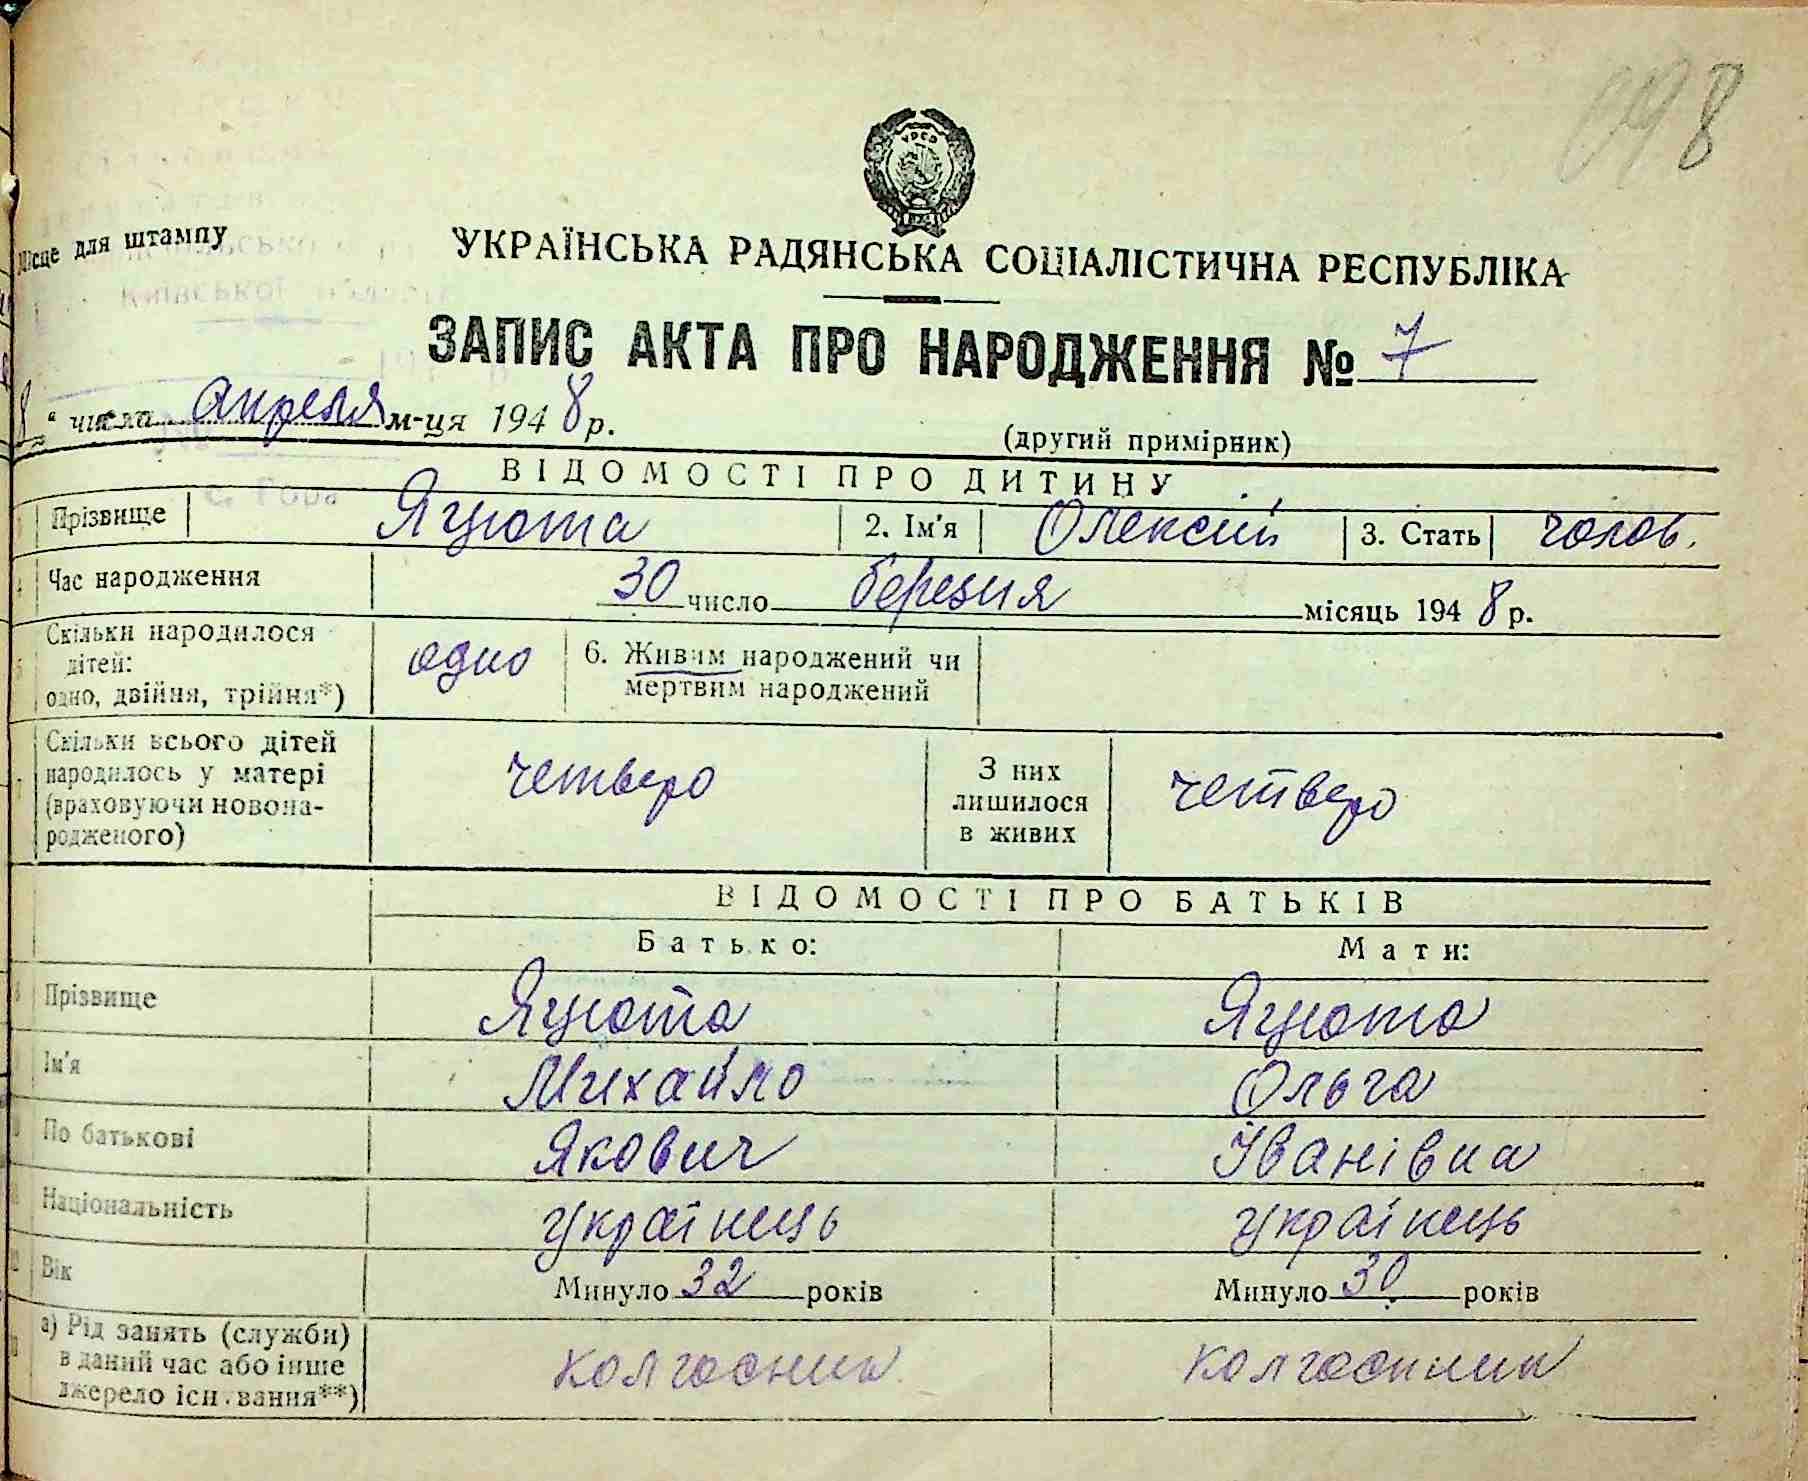 098
УРСР
Місце для штампу
УКРАЇНСЬКА РАДЯНСЬКА СОЦІАЛІСТИЧНА РЕСПУБЛІКА
Київської області
ЗАПИС АКТА ПРО НАРОДЖЕННЯ № 7
8 " числа апреля м-ця 1948 р.
(другий примірник)
ВІДОМОСТІ ПРО ДИТИНУ
с. Гора
Прізвище Яцюта 2. Ім'я Олексій 3. Стать чолов.
4 Час народження 30 число березня місяць 1948 р.
5 Скільки народилося дітей: одно, двійня, трійня*) одно 6. Живим народжений чи мертвим народжений
7 Скільки всього дітей народилось у матері (враховуючи новонародженого) четверо З них лишилося в живих четверо
ВІДОМОСТІ ПРО БАТЬКІВ
Батько: Мати:
8 Прізвище Яцюта Яцюта
Ім'я Михайло Ольга
По батькові Якович Іванівна
Національність українець українець
12 Вік Минуло 32 років Минуло 30 років
а) Рід занять (служби) в даний час або інше джерело існ.вання**) колгосник колгоспник